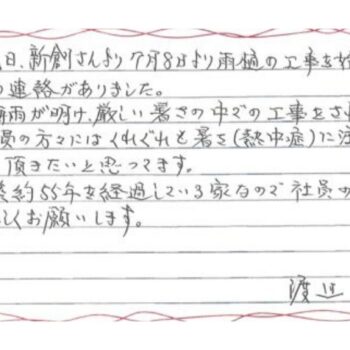 日、新創さんより7月8日より雨樋の工事を
連絡がありました。
梅雨が明け、厳しい暑さの中での工事をさ
員の方々にはくれぐれも暑さ(熱中症)に注
頂きたいと思ってます。
築約55年を経過している家なので社員の
しくお願いします。
渡辺